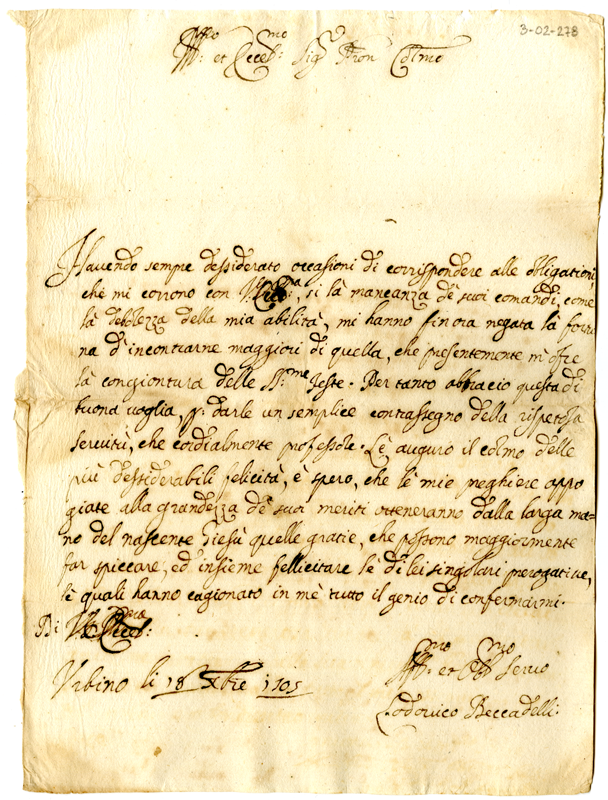 3-02-278
Ill:mo et Eccel:mo Sig.r Pron Colmo
Havendo sempre dessiderato occasioni di corrispondere alle obligationi,
che mi corrono con V. Eccel:za, si la mancanza de suoi comandi, come
là debolezza della mia abilità, mi hanno fin ora negata là fortu
na d'incontrarne maggiori di quella, che presentemente m'ofre
là congiontura delle SS.me feste. Per tanto abbracio questa di
buona voglia, p. darle un semplice contrassegno della rispetosa
servitù, che cordialmente professole. Lè auguro il colmo delle
più dessiderabili felicità, è spero, che lè mie preghiere appo
giate alla grandezza dè suoi meriti otteneranno dalla larga ma=
no del nascente Giesù quelle gratie, che possono maggiormente
far spiccare, ed' insieme fellicitare lè di lei singolari prerogative,
lè quali hanno cagionato in mè tutto il genio di confermarmi.
Di V. Eccel:za
Urbino li 18 Xbre 1705
et Obb:mo Servo
Lodovico Beccadelli: